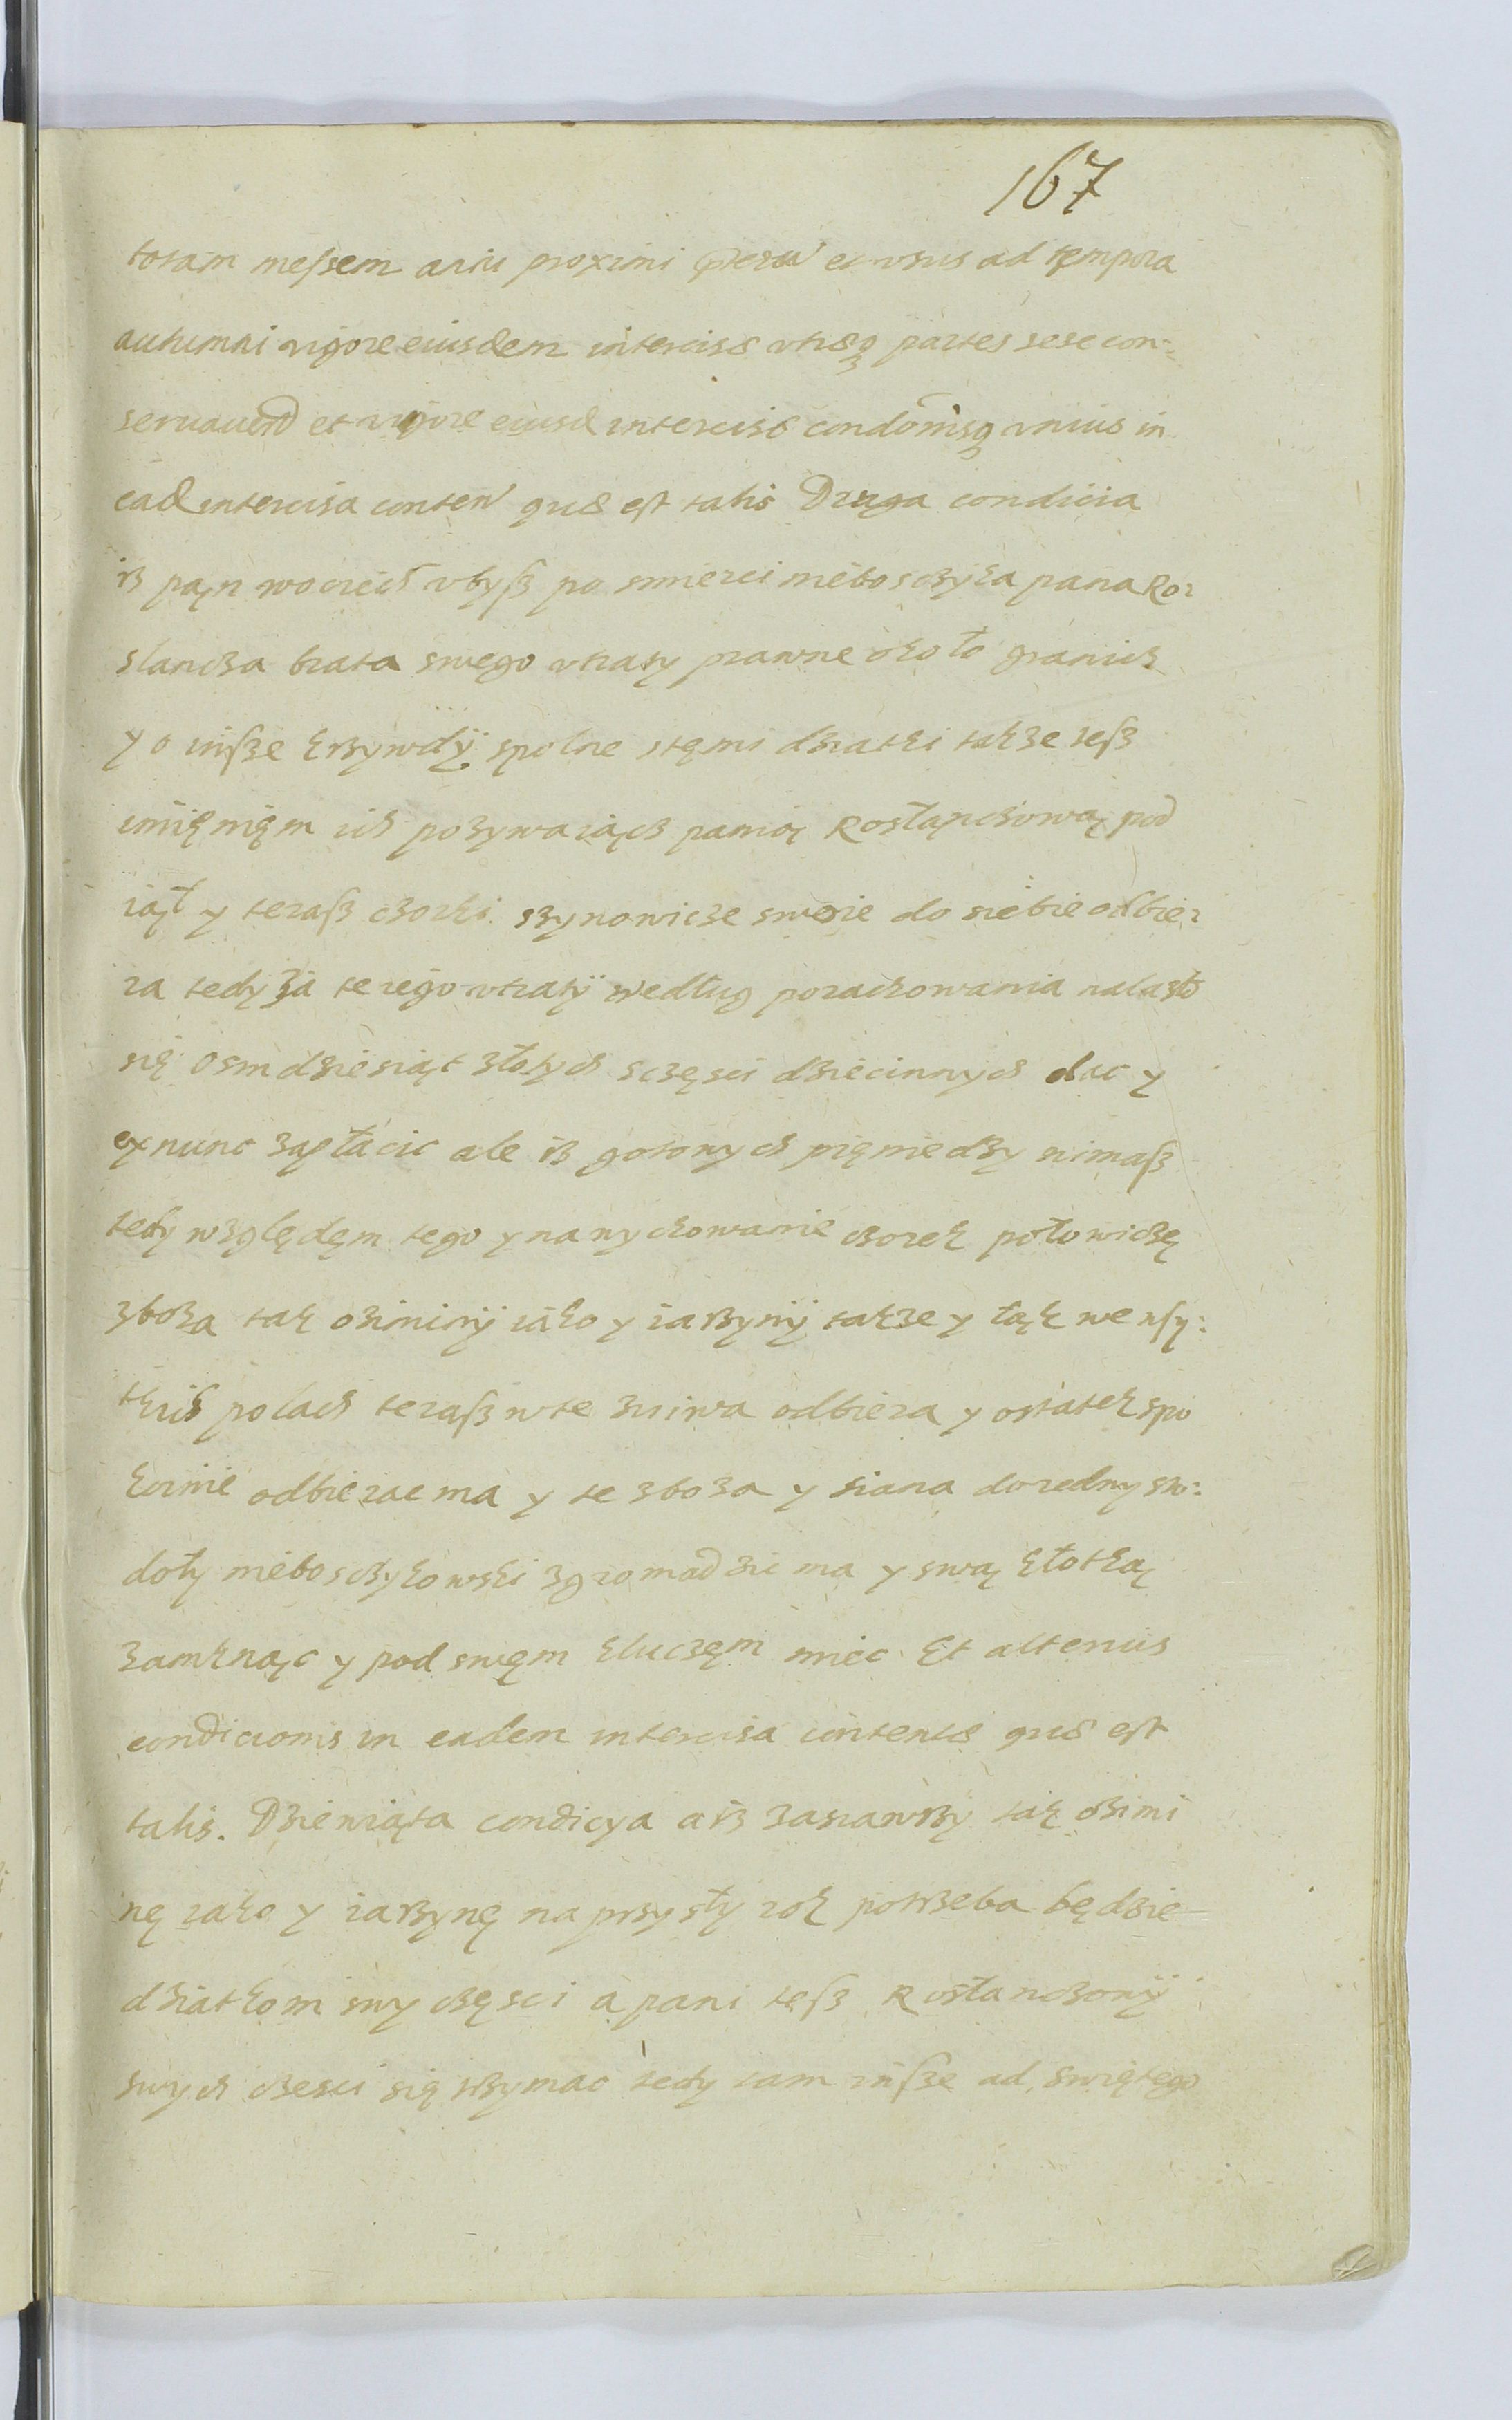 167
totam messem anni proximi preteriti et usus ad tempora
autumni vigore eiusdem intercisae utraeque partes sese con-
servavit et vigore eiusd intercisae condonisq unius in
ead intercisa conten quae est talis Druga condicia
iż pąn wociech vbysz po smierci nieboscżyka pana Ros
slancża brata swego vtraty prawne około granicz
y o insze krzywdy spolne stęmi dziatki takze tesz
imięnięm ich pozywaiącz panią Rosłąnczową pod
iął y terasz czorki synowicze swoie do siebie odbie-
ra tedy za te iego vtraty według porachowania nalazło
się osmdziesiąt złotych sczęsci dziecinnych dac y
ex nunc zapłacic ale iż gotowych pięniedzy nimasz
tedy względęm tego y na wychowanie czorek połowiczę
zboża tak oziminy iako y iarzyny takze y łąk we wsy:
tkich polach terasz wte zniwa odbiera y ostatek spo
koinie odbierac ma y te zboża y siana do iedny sto:
doły nieboscżykowski zgromadzic ma y swą kłotką
zamknąc y pod swęm kluczęm miec Et alterius
condicionis in eadem intercisa contentae quae est
talis. Dziewiąta condicya a iż zasiawszy tak ozimi
nę iako y iarzynę na przysły rok potrzeba będzie
dziatkom swy częsci a pani tesz Rosłanczowy
swych czesci się trzymac tedy tam insze ad swiętego